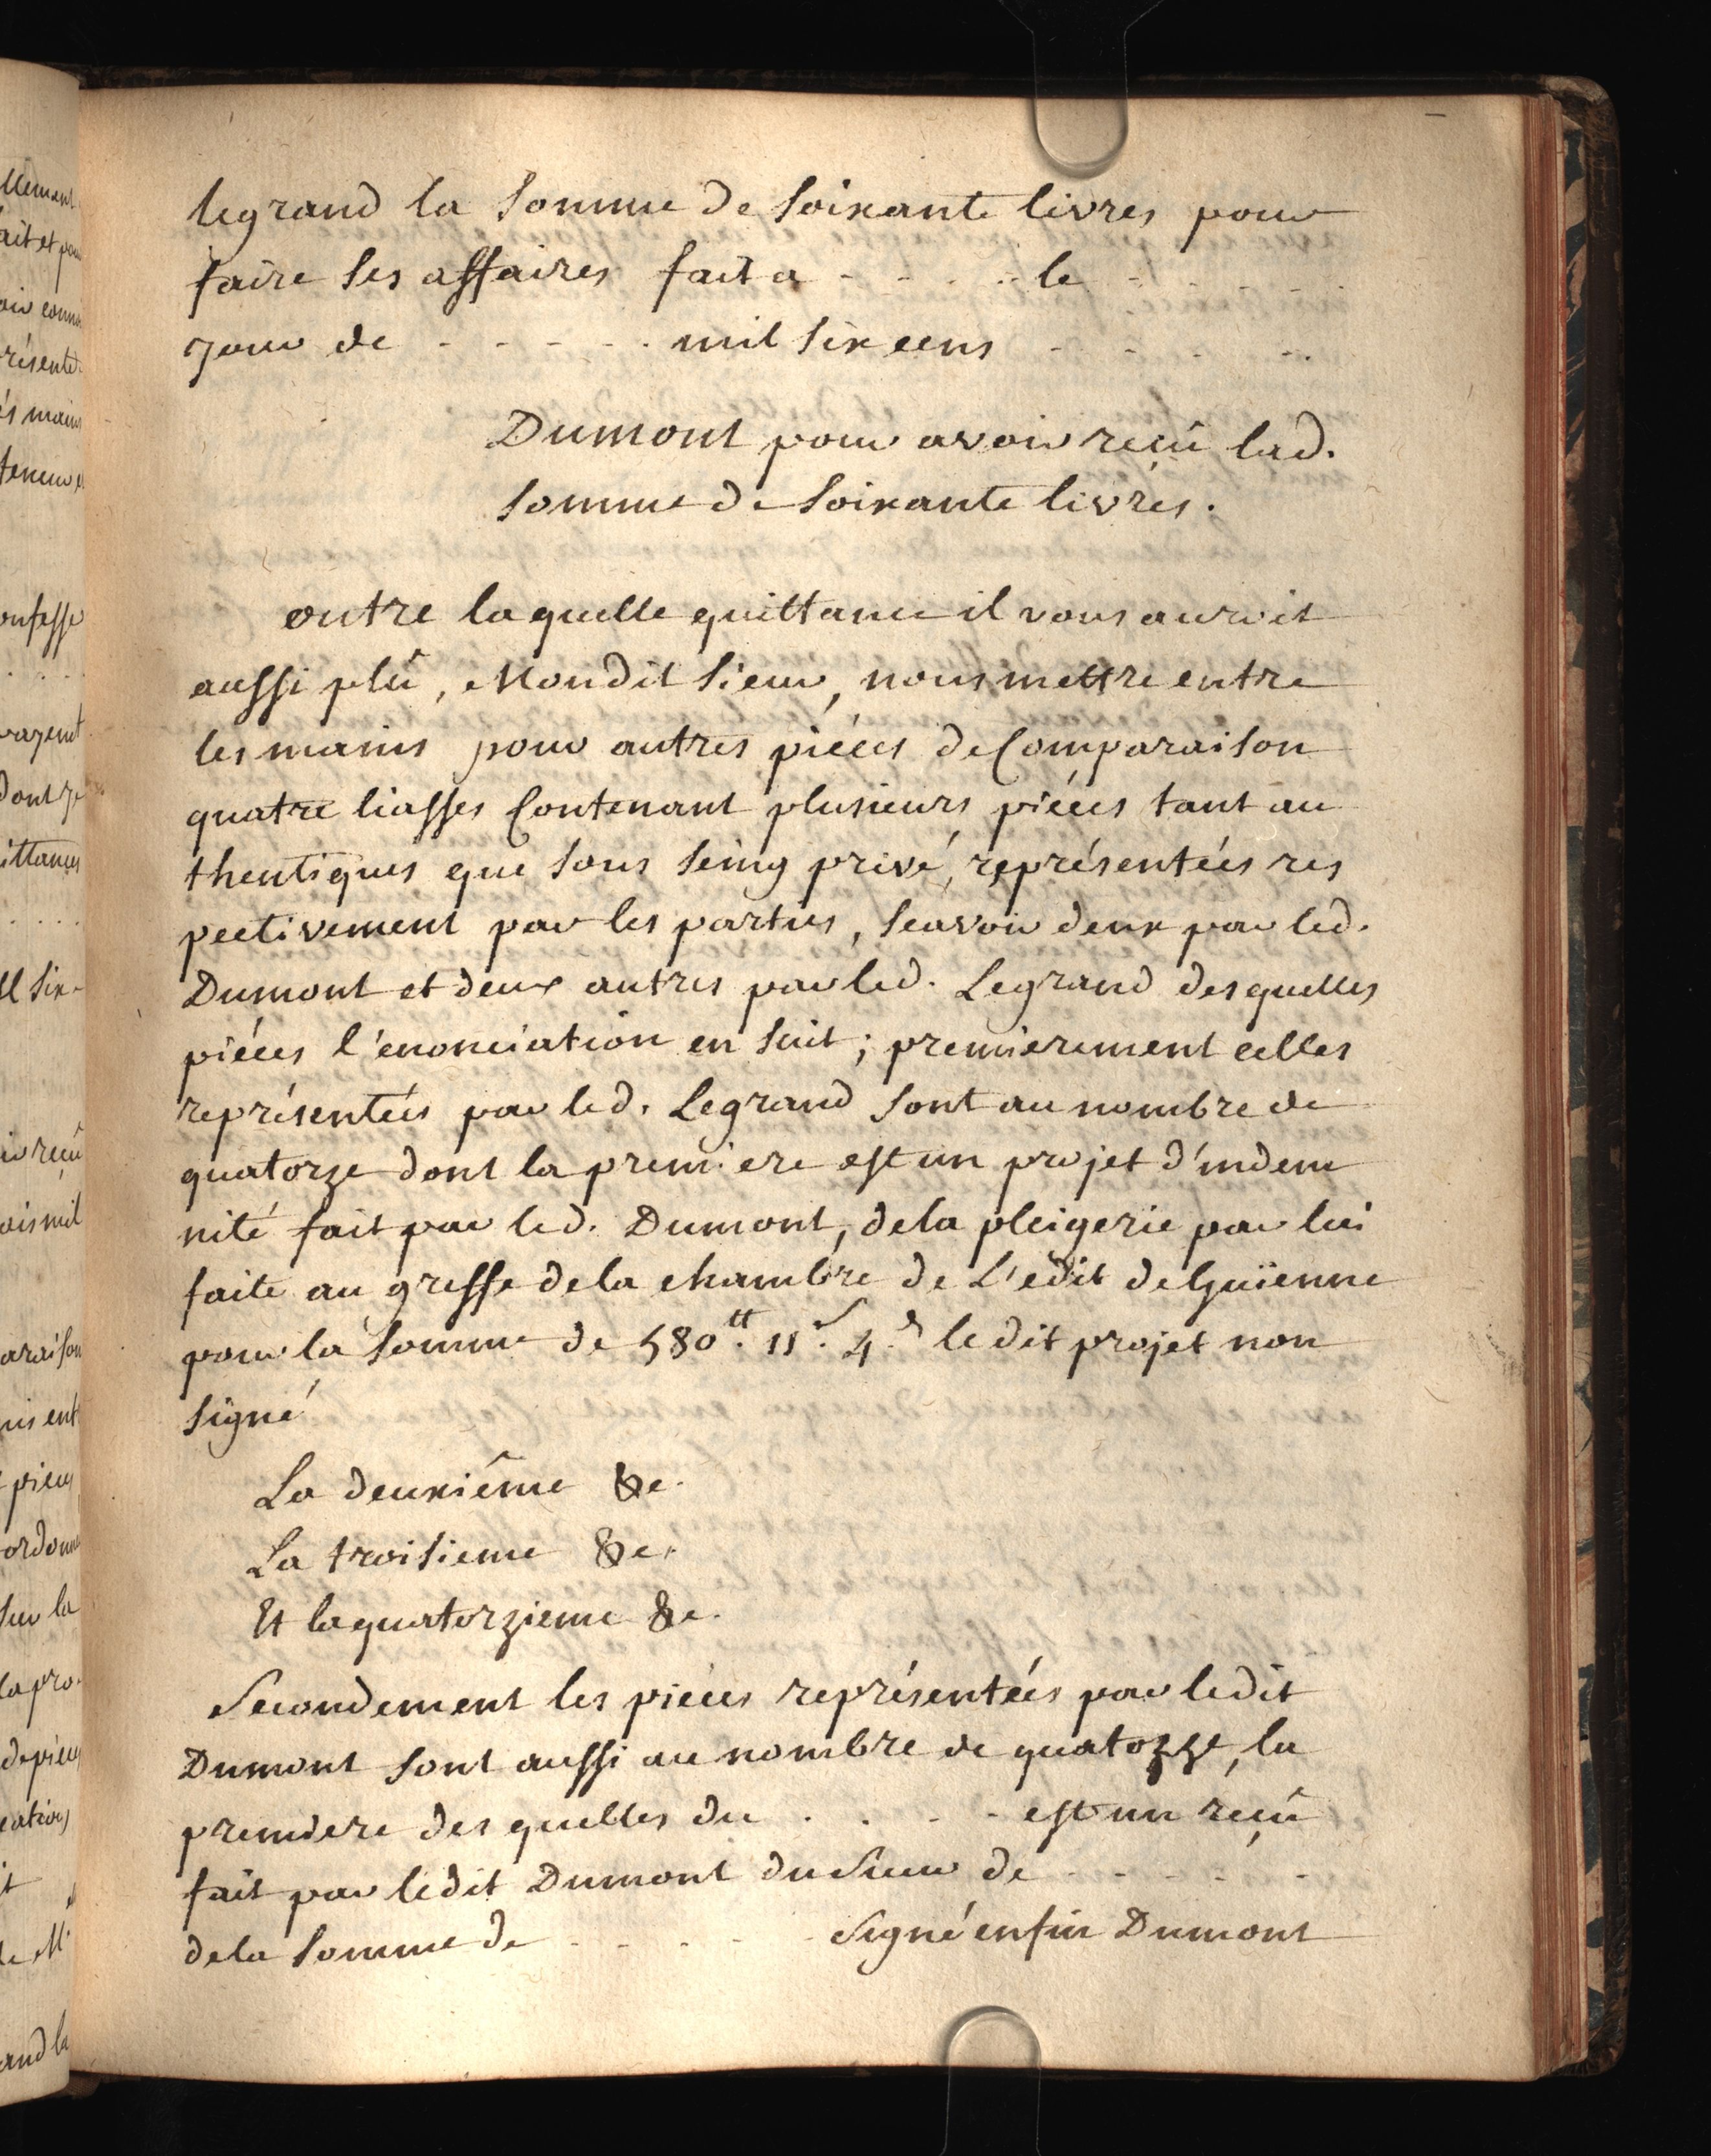 legrand la somme de soixante livres pour
faire ses affaires fait a - - - - le - - - - -
jour de - - - - - mil six cens - - - - -
Dumont pour avoir reçû lad.
somme de soixante livres.
outre laquelle quittance il vous auroit
aussi plû, Mondit sieur, nous mettre entre
les mains pour autres piéces de Comparaison
quatre liasses Contenant plusieurs piéces tant au
thentiques que sous seing privé, représentées res
pectivement par les parties, scavoir deux par led.
Dumont et deux autres par led. Legrand desquelles
piéces l'enonciation en suit ; premierement celles
représentées par led. Legrand sont au nombre de
quatorze dont la premiere est un projet d'indem
nité fait par led. Dumont, de la pleigerie par lui
faite au greffe de la chambre de L'edit de Guïenne
pour la somme de 580.tt 11.s 4.d le dit projet non
signé
La deuxiême &c.
La troisieme &c.
Et la quatorzieme &c.
Secondement les piéces représentées par ledit
Dumont sont aussi au nombre de quatozze, la
premiere des quelles du . . . - est un reçû
fait par ledit Dumont du Sieur de - - - - - -
de la somme de - - - - - Signé enfin Dumont
llement
ait et pour
résenté
és mains
onfesse
dont je
ittances
il six-
reçû
ois mil
araison
piéces
ordonn
sur la
la pro-
de piéces
it
de Mr
and la